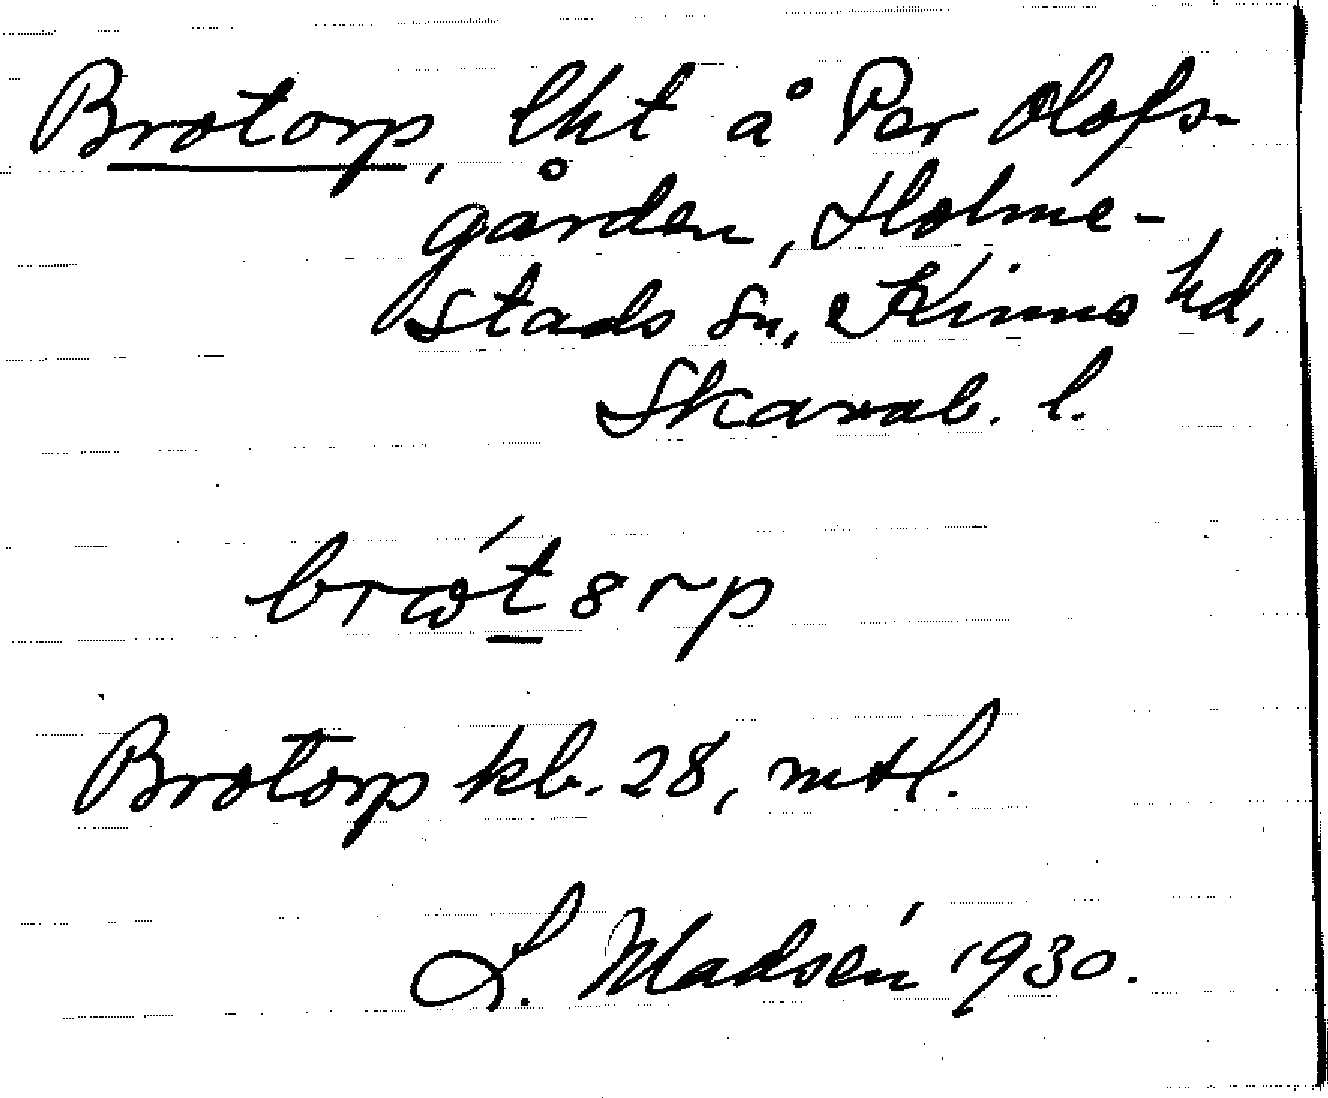 Brotorp, lht å Per Olofs-
gården, Holme-
stads sn, Kinne hd,
Skarab. l.
brωt́8rp
Brotorp kb. 28, mtl.
L. Madsén 1930.